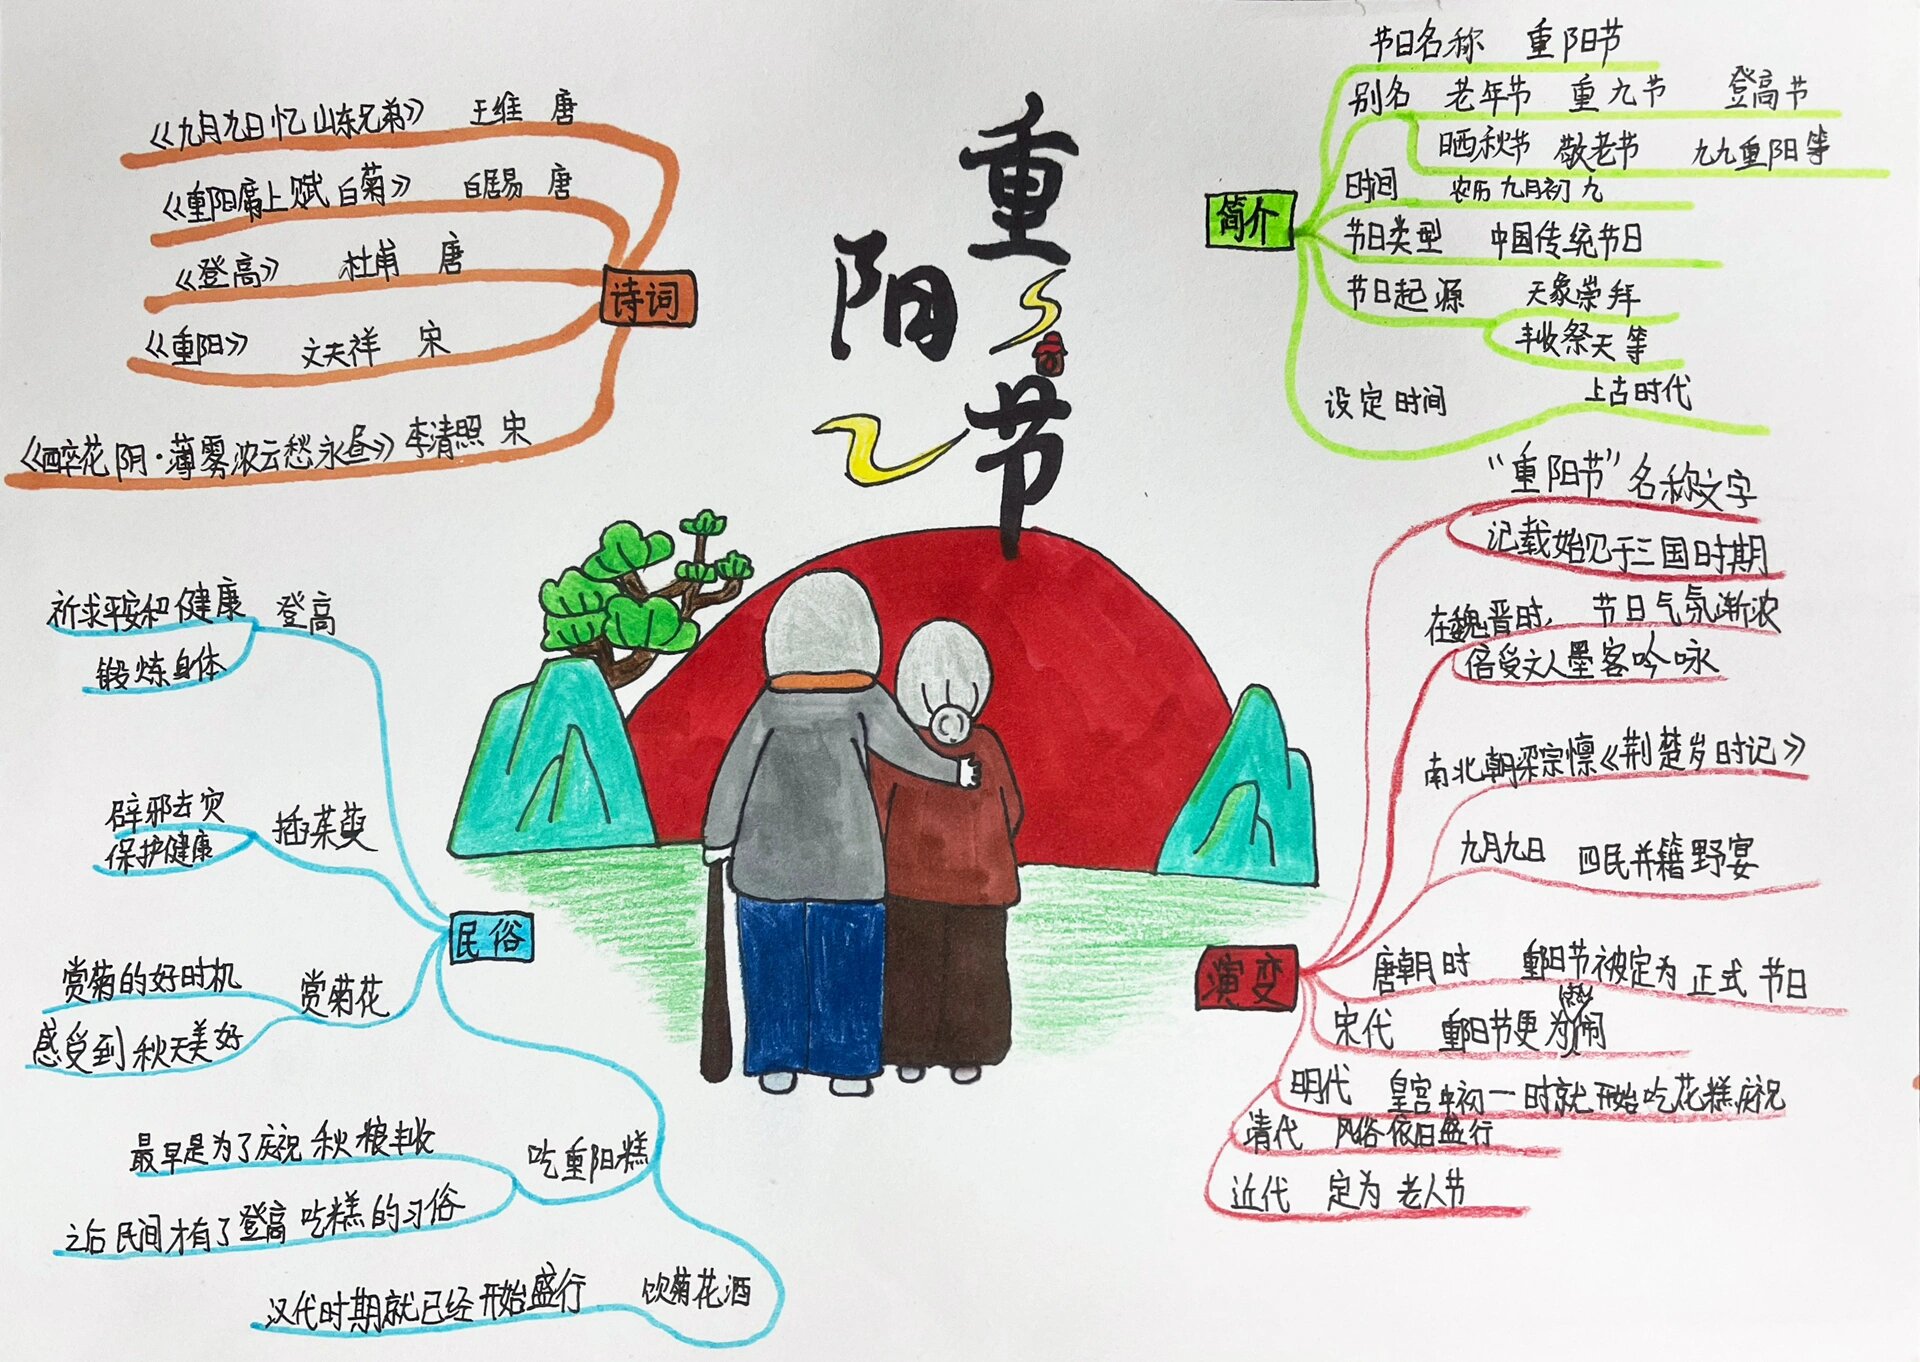 重阳节
诗词
《九月九日忆山东兄弟》 王维 唐
《重阳席上赋白菊》 白居易 唐
《登高》 杜甫 唐
《重阳》 文天祥 宋
《醉花阴·薄雾浓云愁永昼》李清照 宋
简介
节日名称 重阳节
别名 老年节 重九节 登高节
晒秋节 敬老节 九九重阳等
时间 农历九月初九
节日类型 中国传统节日
节日起源 天象崇拜
丰收祭天等
设定时间 上古时代
民俗
祈求平安和健康 登高
锻炼身体
辟邪去灾
保护健康 插茱萸
赏菊的好时机 赏菊花
感受到秋天美好
最早是为了庆祝秋粮丰收 吃重阳糕
之后民间才有了登高吃糕的习俗
汉代时期就已经开始盛行 饮菊花酒
演变
“重阳节”名称文字
记载始见于三国时期
在魏晋时, 节日气氛渐浓
倍受文人墨客吟咏
南北朝梁宗懔《荆楚岁时记》
九月九日 四民并籍野宴
唐朝时 重阳节被定为正式节日
宋代 重阳节更为热闹
明代 皇宫中初一时就开始吃花糕庆祝
清代 风俗依旧盛行
近代 定为老人节